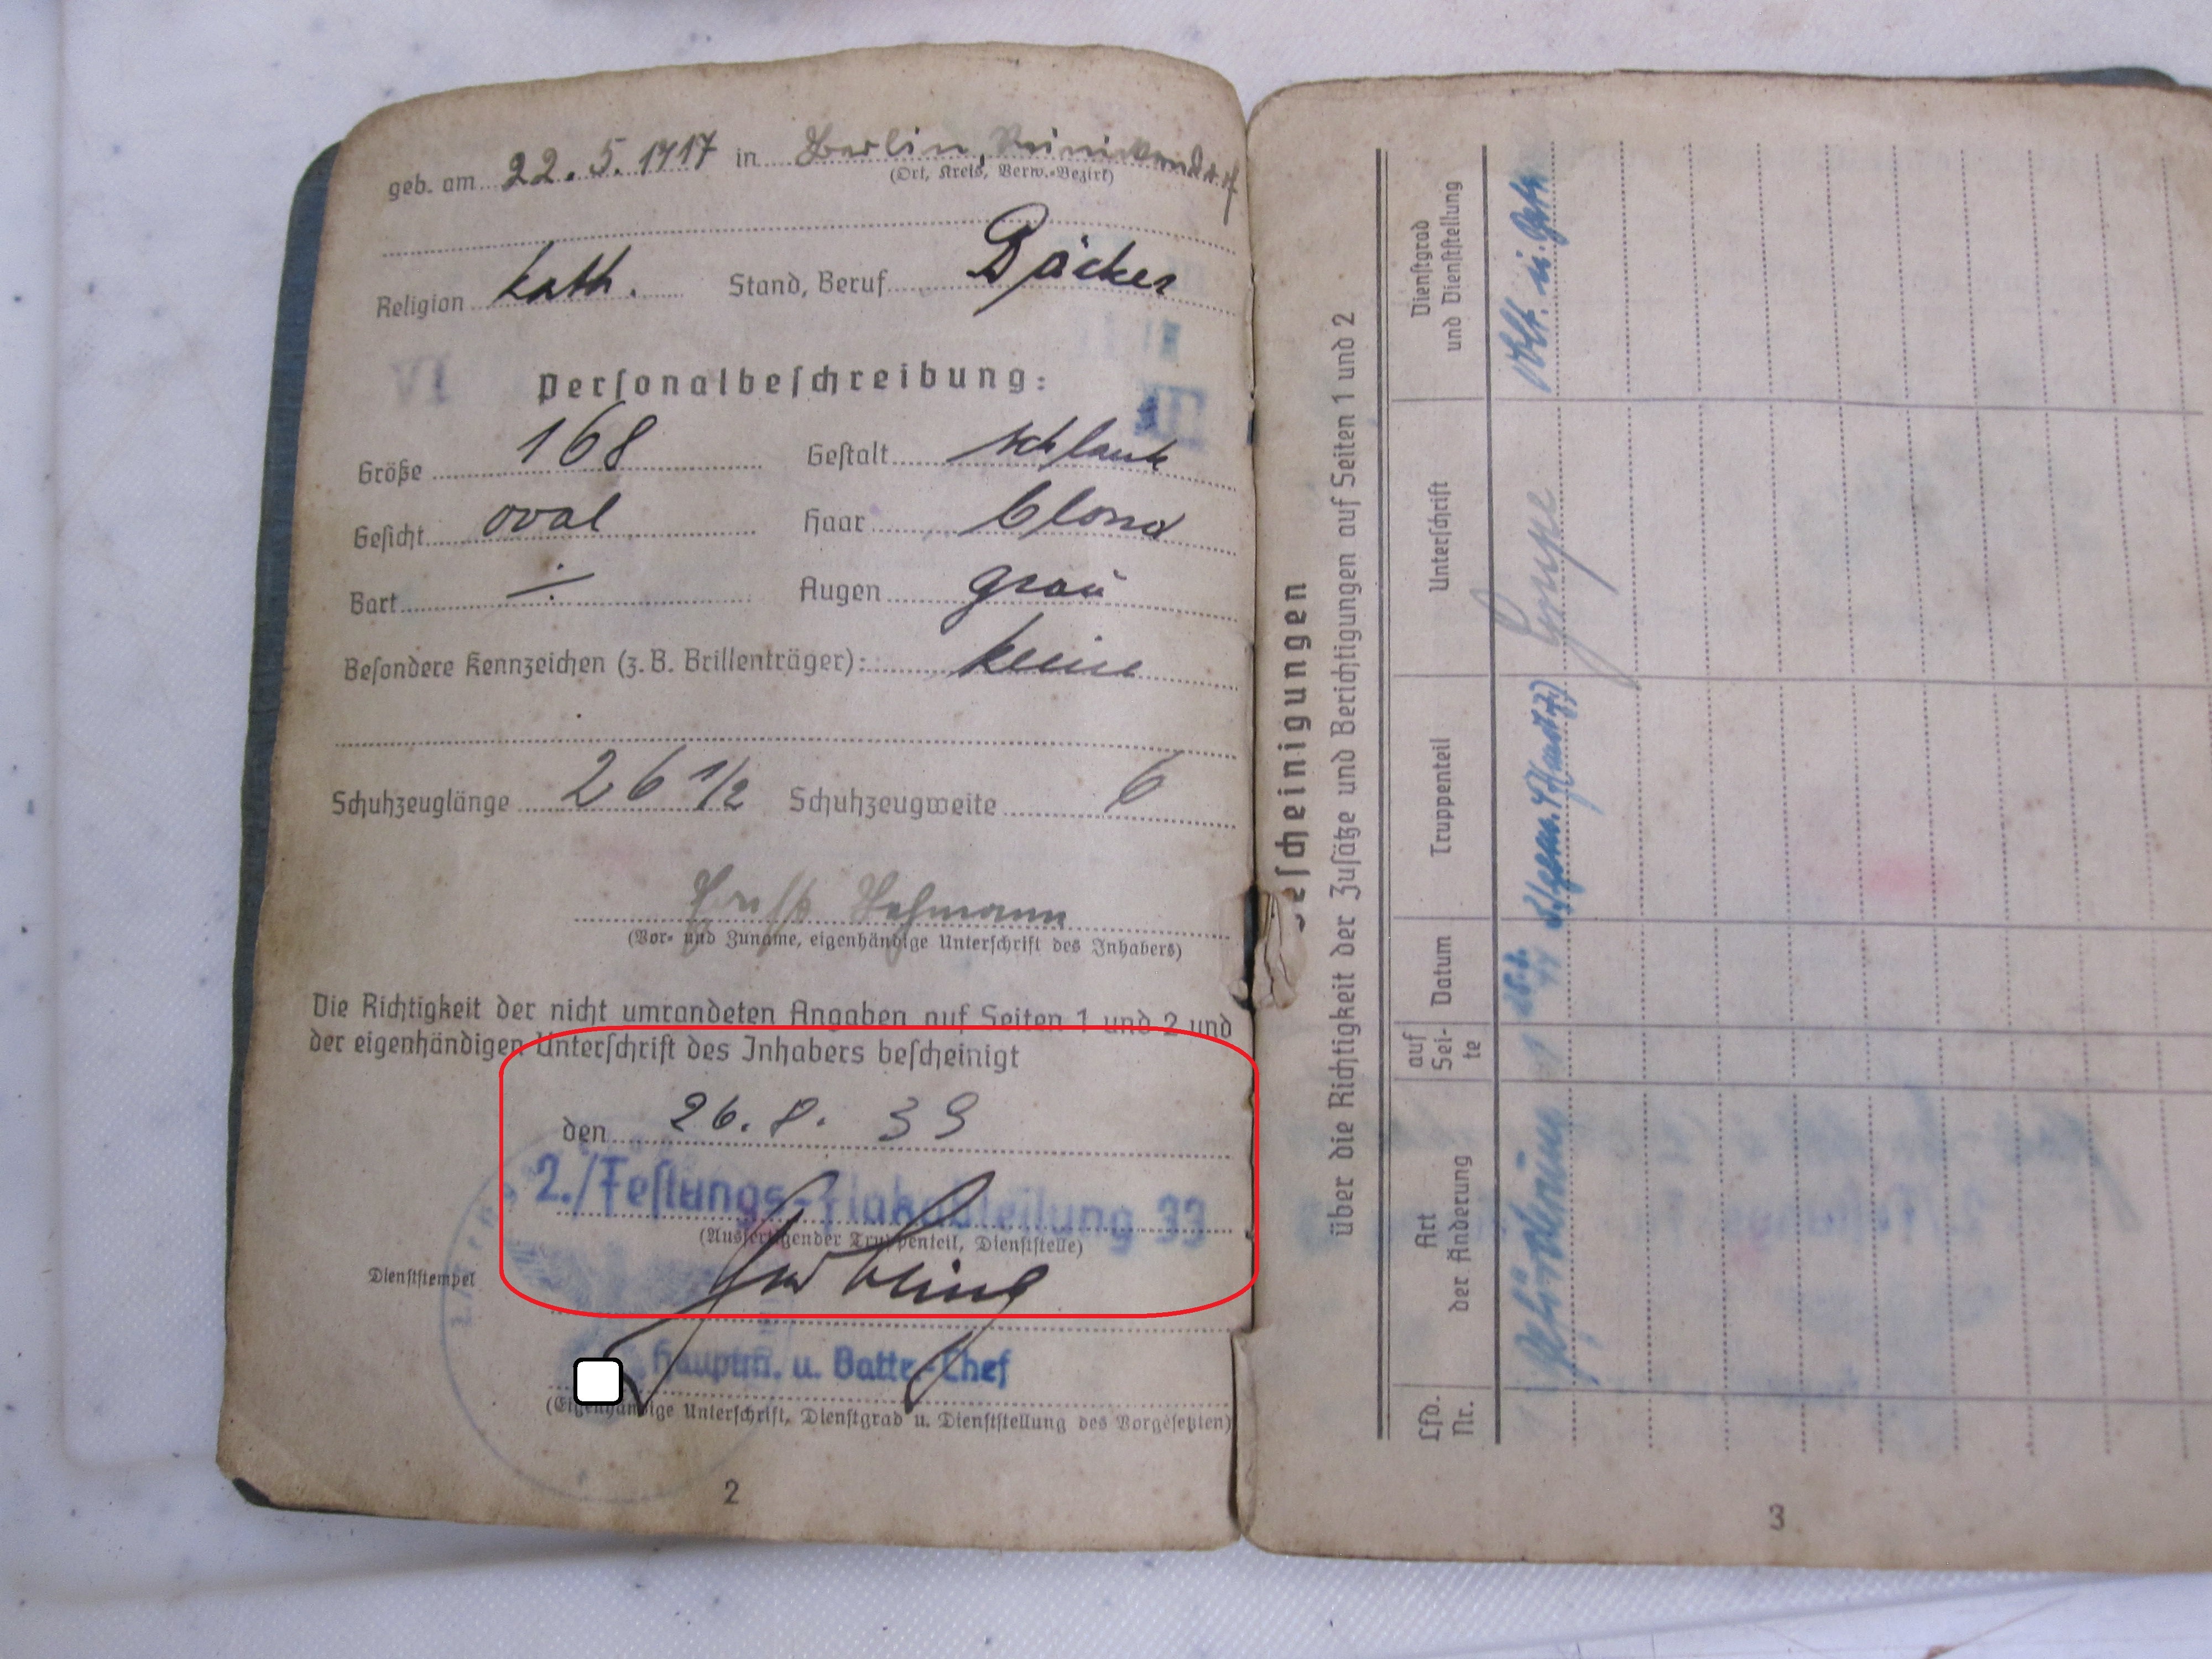 geb. am 22. 5. 1917 in Berlin, Reinickendorf
(Ort, Kreis, Verw.-Bezirk)
Religion kath. Stand, Beruf Bäcker
Personalbeschreibung:
Größe 168 Gestalt schlank
Gesicht oval Haar blond
Bart ÷ Augen grau
Besondere Kennzeichen (z. B. Brillenträger): keine
Schuhzeuglänge 26 1/2 Schuhzeugweite 6
Ernst Lehmann
(Vor- und Zuname, eigenhändige Unterschrift des Inhabers)
Die Richtigkeit der nicht umrandeten Angaben auf Seiten 1 und 2 und
der eigenhändigen Unterschrift des Inhabers bescheinigt
den 26. 8. 39
2./Festungs-Flakabteilung 33
(Ausfertigender Truppenteil, Dienststelle)
Dienststempel
Hauptm. u. Battr.-Chef
(Eigenhändige Unterschrift, Dienstgrad u. Dienststellung des Vorgesetzten)
2
Bescheinigungen
über die Richtigkeit der Zusätze und Berichtigungen auf Seiten 1 und 2
Lfd. Nr.
Art der Änderung
auf Sei- te
Datum
Truppenteil
Unterschrift
Dienstgrad und Dienststellung
1
3